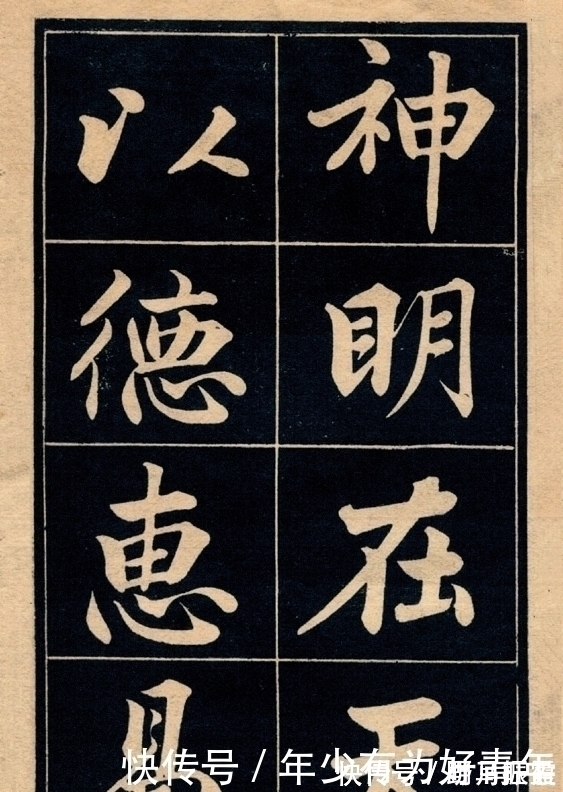 神明在
以德惠
快传号 / 年少有为好青年